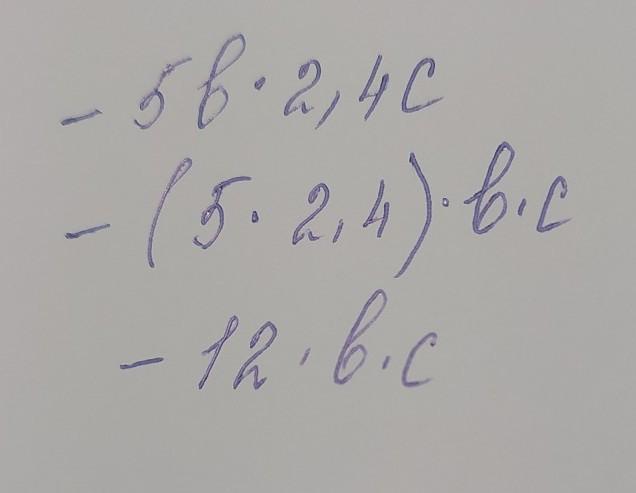 - 5b · 2,4c
- (5 · 2,4) · b · c
- 12 · b · c